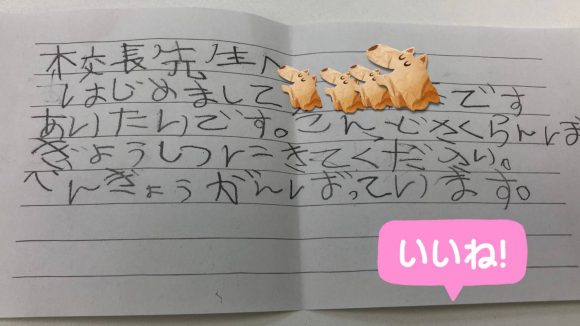 校長先生へ
はじめまして です
あいたいです。こんどさくらんぼ
ぎょうしつにきてください。
べんぎょうがんばっています。
いいね!